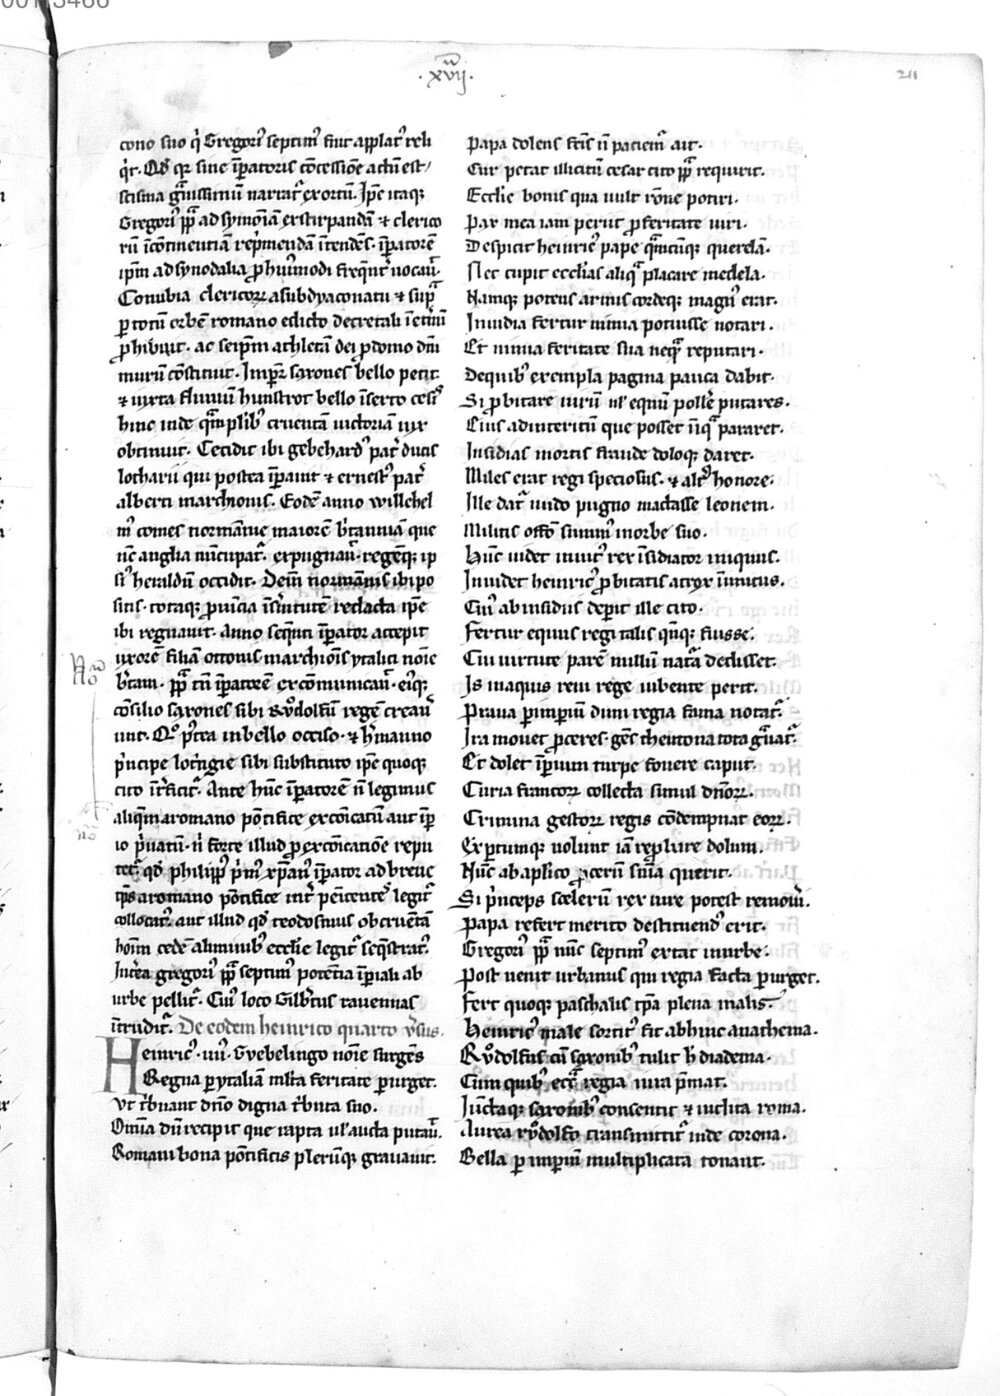 .xvij.
211
cono suo q̇ Gregori᷒ septim᷒ fuit applat᷒ reli
q̇t. Qđ qꝛ sine īꝑatoris ↄ̄cessiōe actū est/
scisma g̑uissimū narrat᷒ exortū. Ip̄e itaqꝫ
Gregori᷒ pp̄ ad symoīam exstirpandā ⁊ clerico
rū īcōtinentiā rep̄mendā ītendēs. īꝑatorē
ip̄m ad synodalia ꝓ hui᷒modi freq̄nt᷒ uocau̅.
Conubia clericoꝝ a subdyaconatu ⁊ sup̄
ꝑ totū orbē romano edicto decretali ī et̄nū
ꝓhibuit. ac seip̄m athletā dei ꝓ domo dn̄i
murū cōstituit. Impꝛ̄ saxones bello petit.
⁊ iuxta fluuiū hunstrot bello īserto ces᷒
hinc inde q̄mplib᷒ cruentā uictoriā uix
obtinuit. Cecidit ibi gebehard᷒ pat̄ ducis
lotharii qui postea īꝑauit ⁊ ernest᷒ pat̄
alberti marchionis. Eodē anno willehel
m᷒ comes normānie maiorē b̄tanniā que
nc̄ anglia nūcupat᷒. expugnau̅. regēqꝫ ip
si᷒ heraldū occidit. Deīn normānis ibi po
sitis. totaqꝫ ꝓuīcia ī s̄uitutē redacta ip̄e
ibi regnauit. Anno seq̄nti īꝑator accepit
uxorē filiā ottonis marchiōis ytalici noīe
b̄tam. pp̄ tn̄ īꝑatorē excōmunicau̅. eiqꝫ
cōsilio saxones sibi Rv̊dolfū regē creau̅
unt. Qo p̄tea in bello occiso. ⁊ h̄manno
p̄ncipe lot̄ngie sibi substituto ip̄e quoqꝫ
cito īt̄ficit᷒. Ante hūc īꝑatorē n̄ legimus
aliquē a romano pōtifice excōicatū aut īꝑ
io p̄uatū. n̄ forte illud ꝓ excōicatiōe repu
tet᷒. qđ philipp᷒ p̄m᷒ xp̄ian᷒ īꝑator ad breue
tp̄s a romano pōtifice int̄ penitentes legit᷒
collocat᷒. aut illud qđ teodosius ob cruentā
hoīm cedē a liminib᷒ ecclīe legit᷒ seq̄strat᷒.
Int̄ea gregori᷒ pp̄ septim᷒ potentia īꝑiali ab
urbe pellit᷒. Cui᷒ loco Gilb̄tus rauennas
ītrudit᷒. De eodem heinrico quarto v̄sus.
Heinric᷒ .iiii. Gvebelingo noīe surgēs
Regna ꝑ ytaliā mlta feritate ꝑurget.
Vt t̄buant dn̄o digna t̄buta suo.
Om̄ia dū recipit que rapta ul᷒ aucta putau̅.
Romani bona pōtificis plerūqꝫ grauauit.
Papa dolens sc̄tis n̄ pacienṯ ait.
Cur petat illicitū cesar cito pp̄ requirit.
Ecclīe bonis qua uult rōne potiri.
Par mea iam periit ꝓ feritate uiri.
Despicit heinric᷒ pape q̄mcūqꝫ querelā.
Nec cupit ecclīas aliq̄ placare medela.
Namqꝫ potens armis cordeqꝫ magn᷒ erat.
Inuidia fertur nimia potuisse notari.
Et nimia feritate sua neqꝫ reputari.
De quib᷒ exempla pagina pauca dabit.
Si ꝓbitate uirū ul᷒ equū pollē putares.
Eius ad interitū que posset n̄q̄ pararet.
Insidias mortis fraude doloqꝫ daret.
Miles erat regi speciosus. ⁊ alt᷒ honore.
Ille dat᷒ nudo pugno mactasse leonem.
Militis offō sūmit᷒ morbe suo.
Hūc uidet inuit᷒ rex īsidiator iniquus.
Inuidet heinric᷒ ꝓbitatis atrox īimicus.
Cui᷒ ab insidiis deperit ille cito.
Fertur equus regi talis quīqꝫ fuisse.
Cui uirtute parē nullū nat̄a dedisset.
Is inaquis reni rege iubente perit.
Praua ꝑ imperiū dum regia fama notat᷒.
Ira mouet ꝓceres. gēs theutona tota g̑uat᷒.
Et dolet īꝑium turpe fouere caput.
Curia francoꝝ collecta simul dn̄oꝝ.
Crimina gestoꝝ regis cōdempnat eoꝝ.
Exꝑtumqꝫ uolunt iā replure dolum.
Hūc ab aplīco ꝓcerū sn̄ia querit.
Si p̄nceps scelerū rex iure potest remou̅i.
Papa refert merito destituend᷒ erit.
Gregori᷒ pp̄ nūc septim᷒ extat in urbe.
Post uenit urbanus qui regia facta ꝑurget.
Fert quoqꝫ paschalis tp̄a plena malis.
Heinric᷒ male sortit᷒ sit abhinc anathema.
Rv̊dolfus cū saxonib᷒ tulit h̄ diadema.
Cum quib᷒ ecc̄a regia iura p̄mat.
Iūctaqꝫ saxonib᷒ consentit ⁊ inclita roma.
Aurea rv̊dolfo transmittit᷒ inde corona.
Bella ꝑ imꝑiū multiplicata tonant.